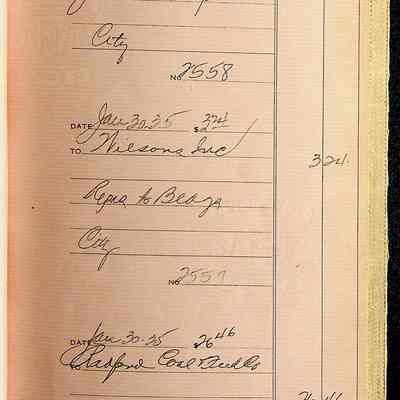 City
No 2558
DATE Jan 30-35 $3.24
TO Wilsons Inc
3 24
Reprs to Bldgs
City
No 2557
DATE Jan 30-35 26 46
TO Radford Coal
26 46